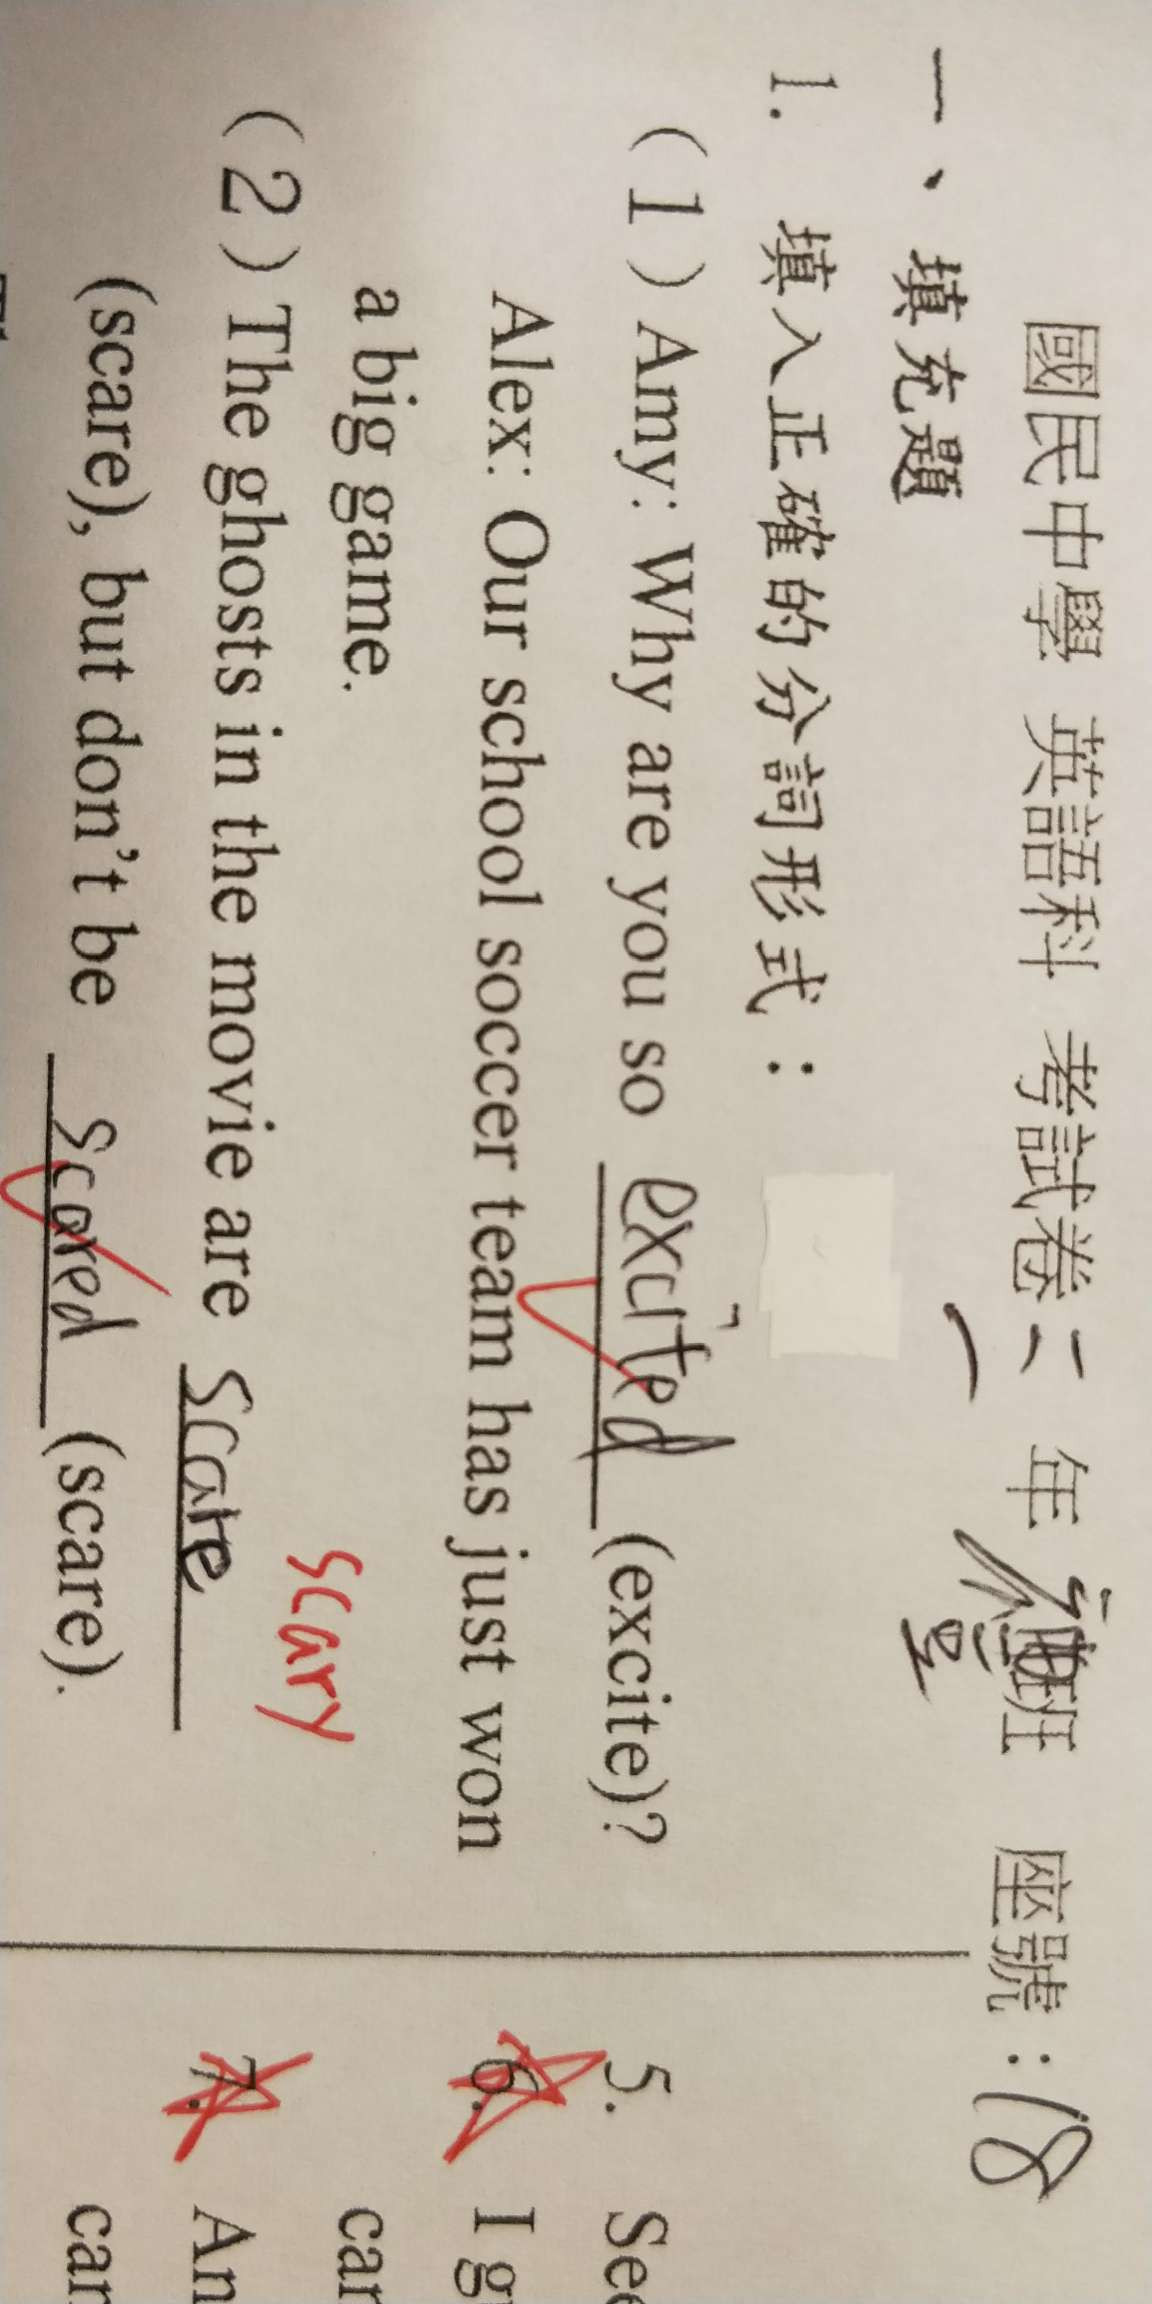 國民中學 英語科 考試卷 二 年 班 座號：18
一、填充題
1. 填入正確的分詞形式：
(1) Amy: Why are you so excited (excite)?
Alex: Our school soccer team has just won
a big game.
scary
(2) The ghosts in the movie are scare
(scare), but don't be scared (scare).
5. See
6. I g
car
7. An
can